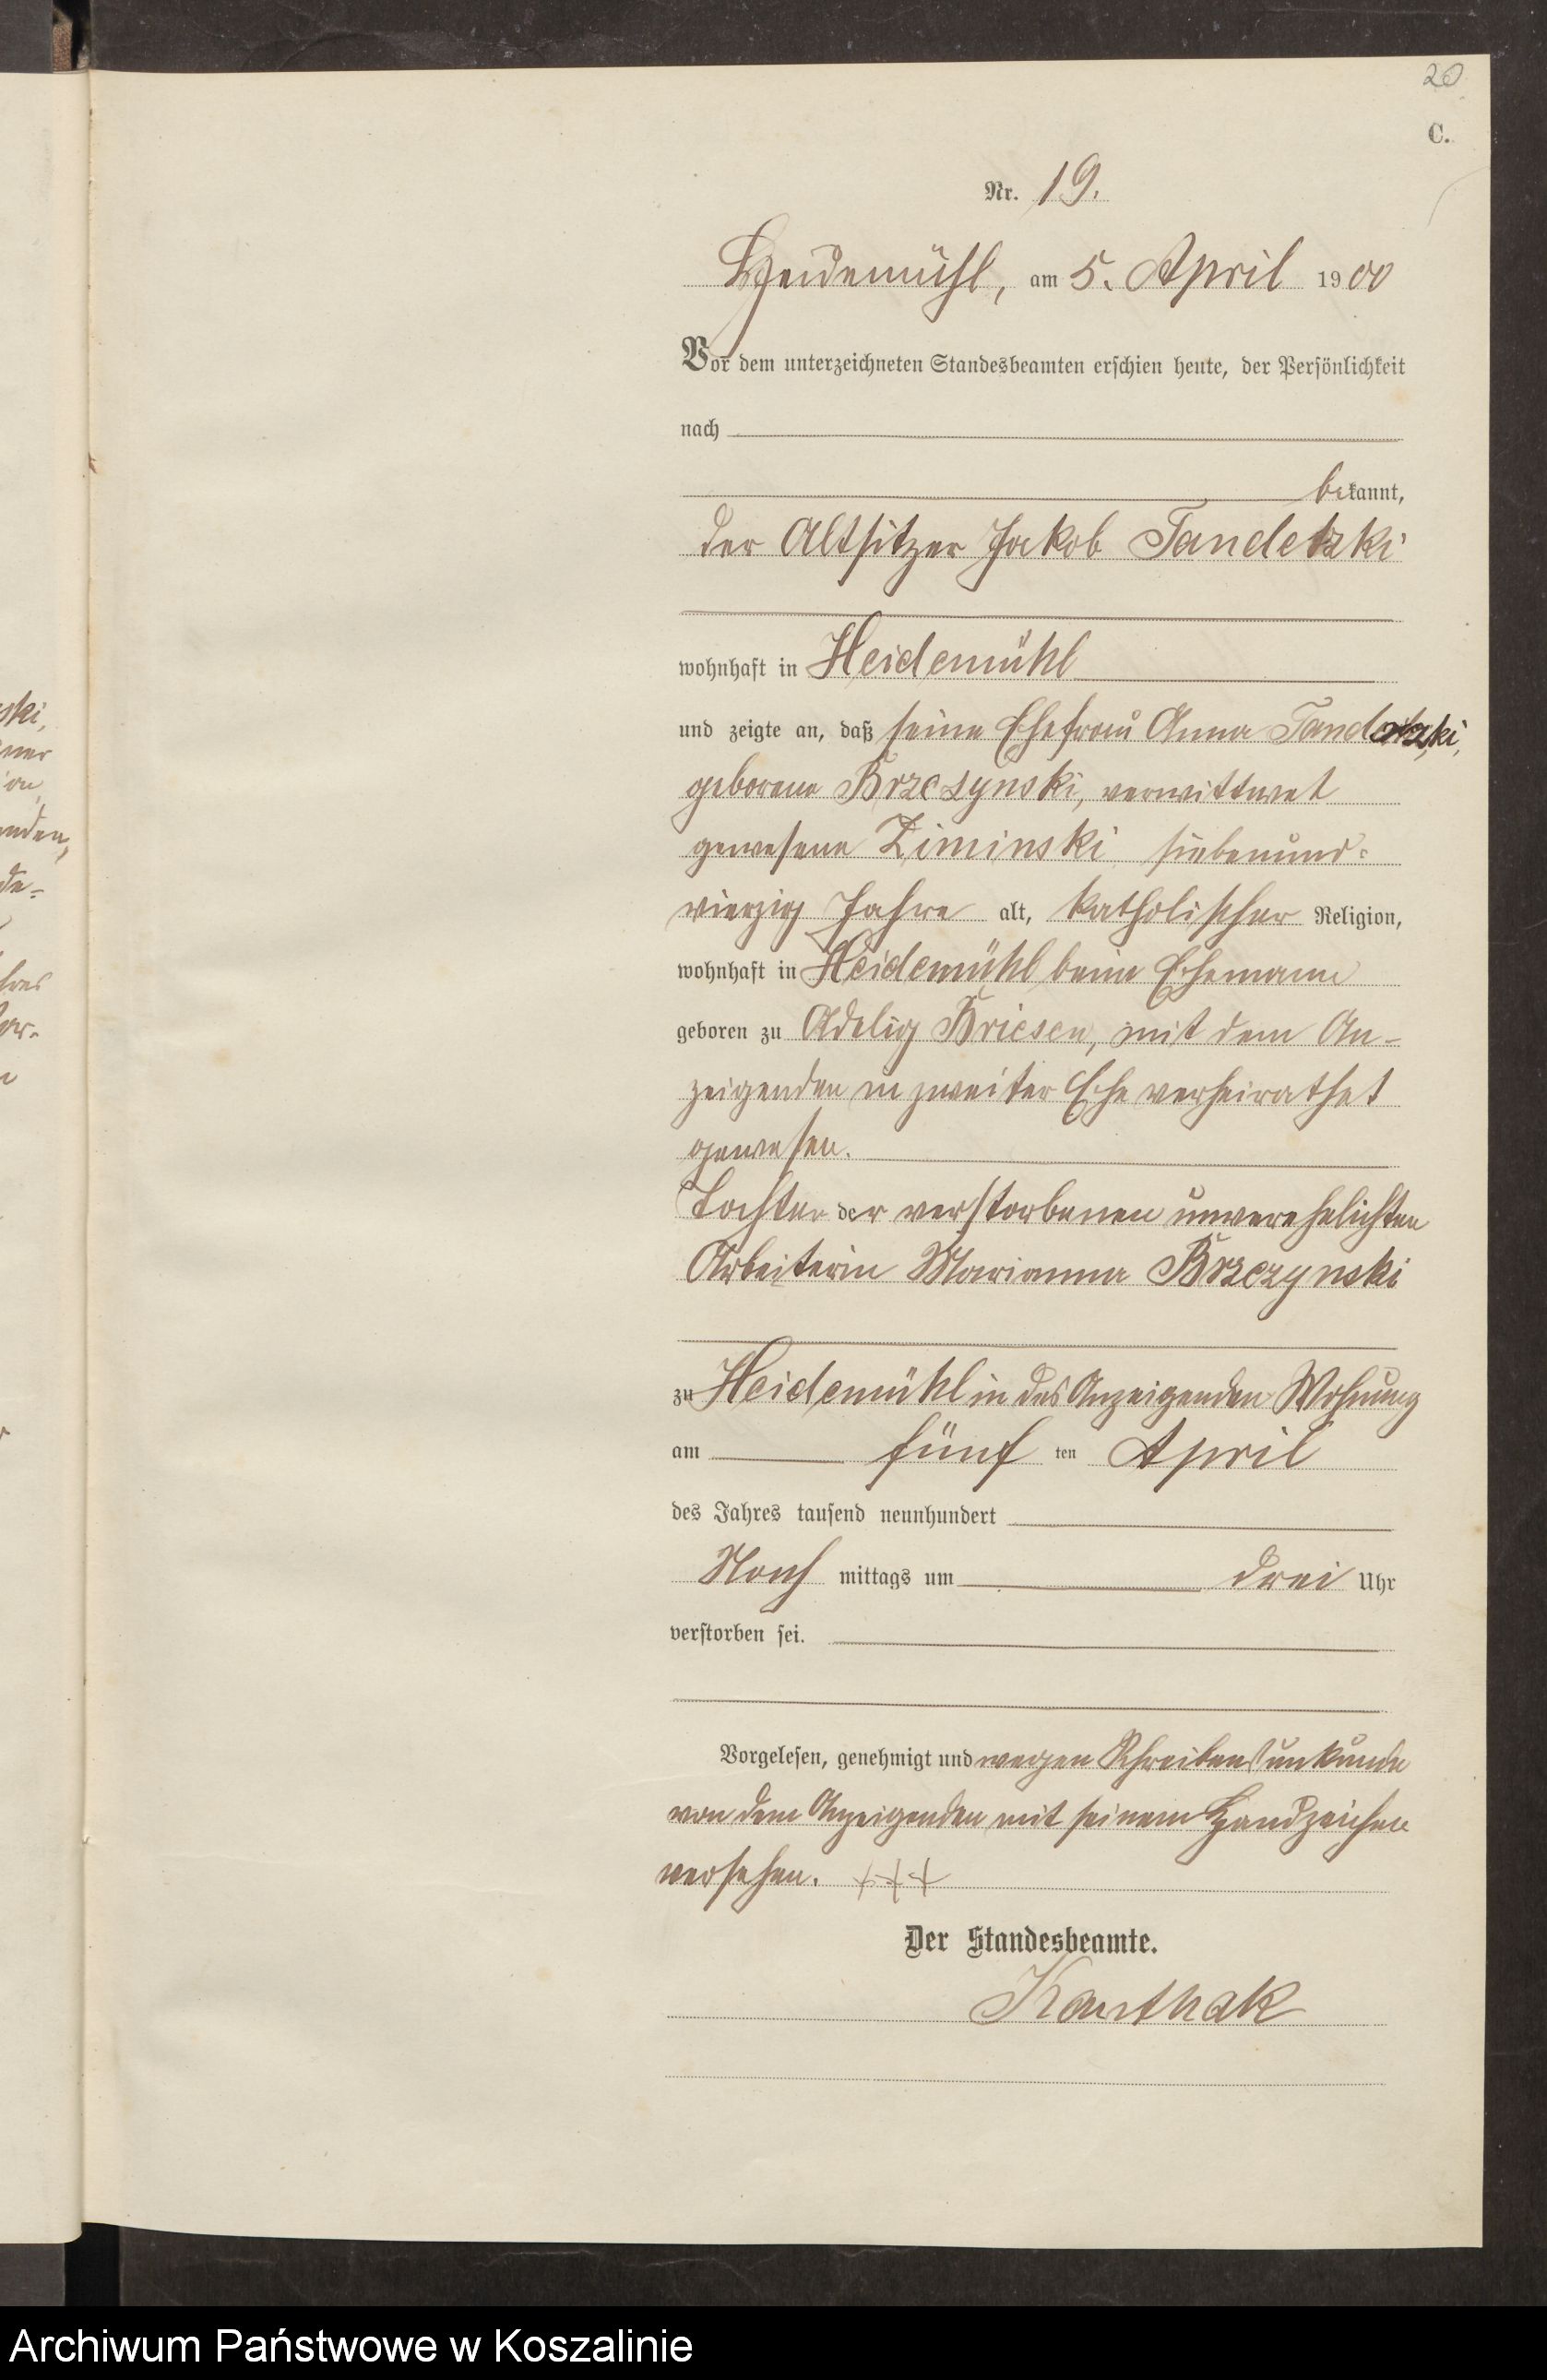 20
C.
Nr. 19.
Heidemühl, am 5. April 1900
Vor dem unterzeichneten Standesbeamten erschien heute, der Persönlichkeit
nach
bekannt,
der Altsitzer Jakob Tandetzki
wohnhaft in Heidemühl
und zeigte an, daß seine Ehefrau Anna Tandetzki,
geborene Brzezynski, verwittwet
gewesene Ziminski siebenund-
vierzig Jahre alt, katholischer Religion,
wohnhaft in Heidemühl beim Ehemann
geboren zu Adelig Briesen, mit dem An-
zeigenden in zweiter Ehe verheirathet
gewesen.
Tochter der verstorbenen unverehelichten
Arbeiterin Marianna Brzezynski
zu Heidemühl in des Anzeigenden Wohnung
am fünften April
des Jahres tausend neunhundert
Nachmittags um drei Uhr
verstorben sei.
Vorgelesen, genehmigt und wegen Schreibensunkunde
von dem Anzeigenden mit seinem Handzeichen
versehen. +++
Der Standesbeamte.
Kanthak
ski,
ner
on,
nden,
de-
Archiwum Państwowe w Koszalinie